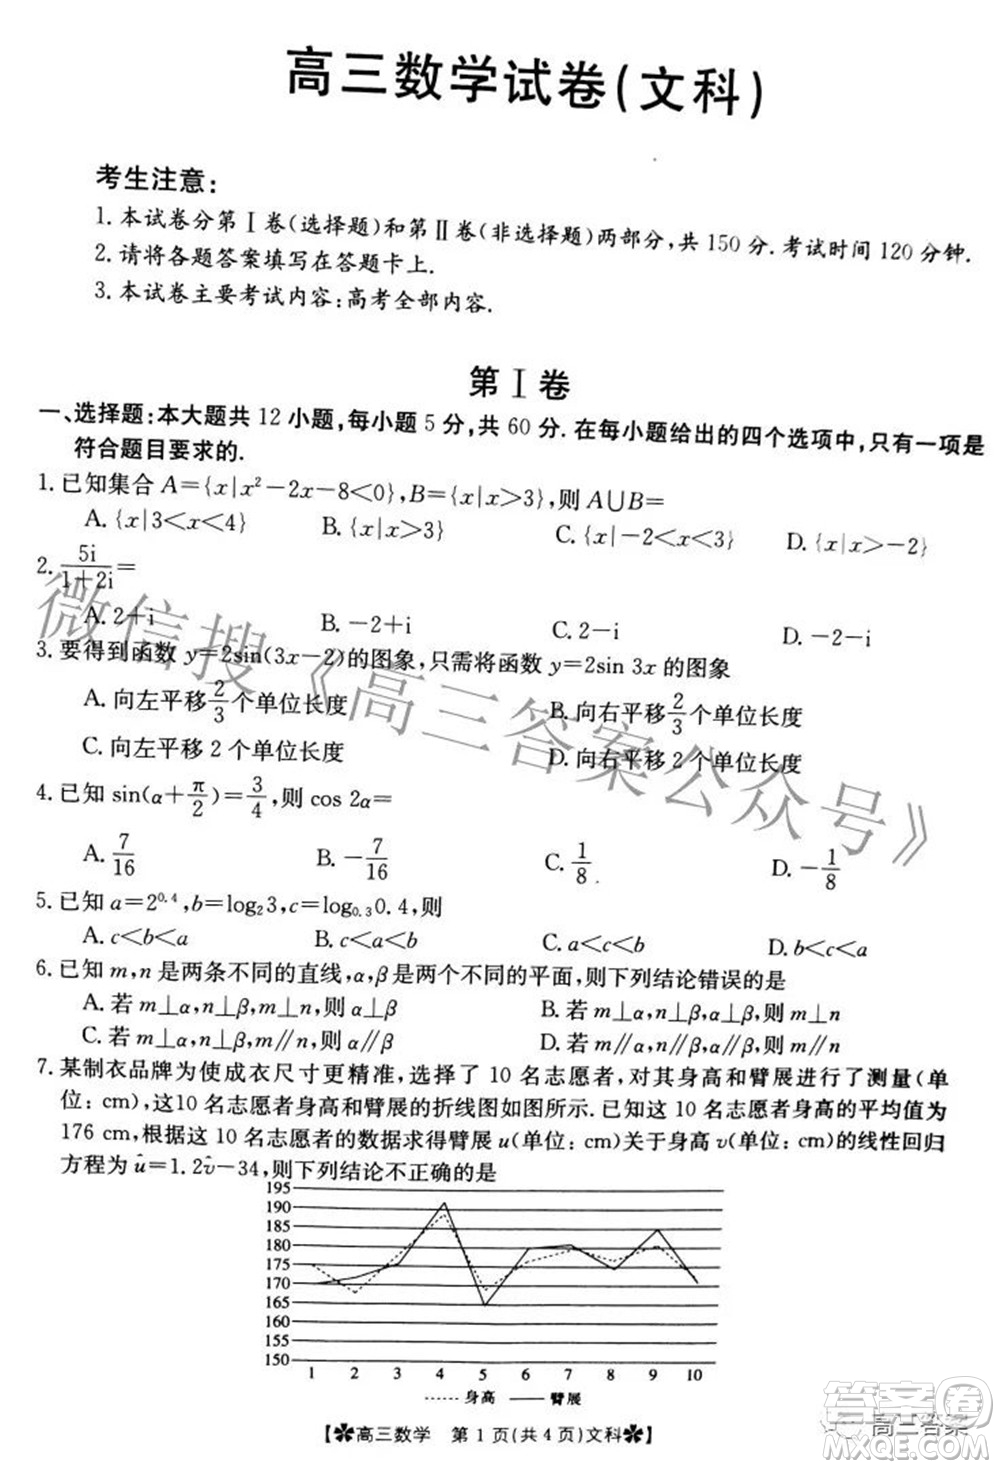 高三数学试卷(文科)
考生注意:
1.本试卷分第Ⅰ卷(选择题)和第Ⅱ卷(非选择题)两部分,共150分.考试时间120分钟.
2.请将各题答案填写在答题卡上.
3.本试卷主要考试内容:高考全部内容.
第Ⅰ卷
一、选择题:本大题共12小题,每小题5分,共60分.在每小题给出的四个选项中,只有一项是
符合题目要求的.
1.已知集合A={x|x²-2x-8<0},B={x|x>3},则A∪B=
A.{x|3<x<4} B.{x|x>3} C.{x|-2<x<3} D.{x|x>-2}
2.5i/(1+2i)=
A.2+i B.-2+i C.2-i D.-2-i
3.要得到函数y=2sin(3x-2)的图象,只需将函数y=2sin 3x的图象
A.向左平移2/3个单位长度 B.向右平移2/3个单位长度
C.向左平移2个单位长度 D.向右平移2个单位长度
4.已知sin(α+π/2)=3/4,则cos 2α=
A.7/16 B.-7/16 C.1/8 D.-1/8
5.已知a=2^0.4,b=log₂3,c=log₀.₃0.4,则
A.c<b<a B.c<a<b C.a<c<b D.b<c<a
6.已知m,n是两条不同的直线,α,β是两个不同的平面,则下列结论错误的是
A.若m⊥α,n⊥β,m⊥n,则α⊥β B.若m⊥α,n⊥β,α⊥β,则m⊥n
C.若m⊥α,n⊥β,m∥n,则α∥β D.若m⊥α,n⊥β,m∥n,则α⊥β
7.某制衣品牌为使成衣尺寸更精准,选择了10名志愿者,对其身高和臂展进行了测量(单
位:cm),这10名志愿者身高和臂展的折线图如图所示.已知这10名志愿者身高的平均值为
176 cm,根据这10名志愿者的数据求得臂展u(单位:cm)关于身高v(单位:cm)的线性回归
方程为û=1.2v̂-34,则下列结论不正确的是
195
190
185
180
175
170
165
160
155
150
1 2 3 4 5 6 7 8 9 10
身高 臂展
【高三数学 第1页(共4页)文科】
微信搜《高三答案公众号》
答案圈
高三答案
MXQE.COM